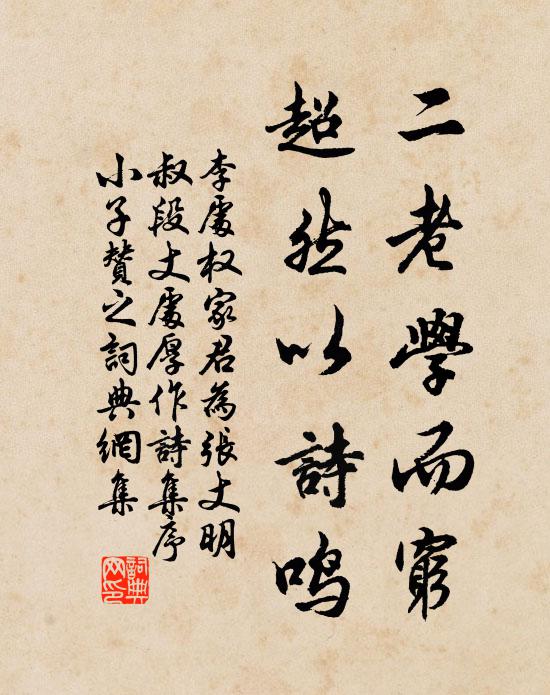 二老學而窮
超然以詩鳴
李處权家君為張丈明
叔段丈處厚作詩集序
小子贊之詞典網集
詞典
网印